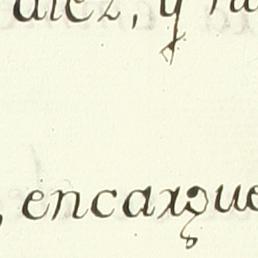 diez, y
, encargue